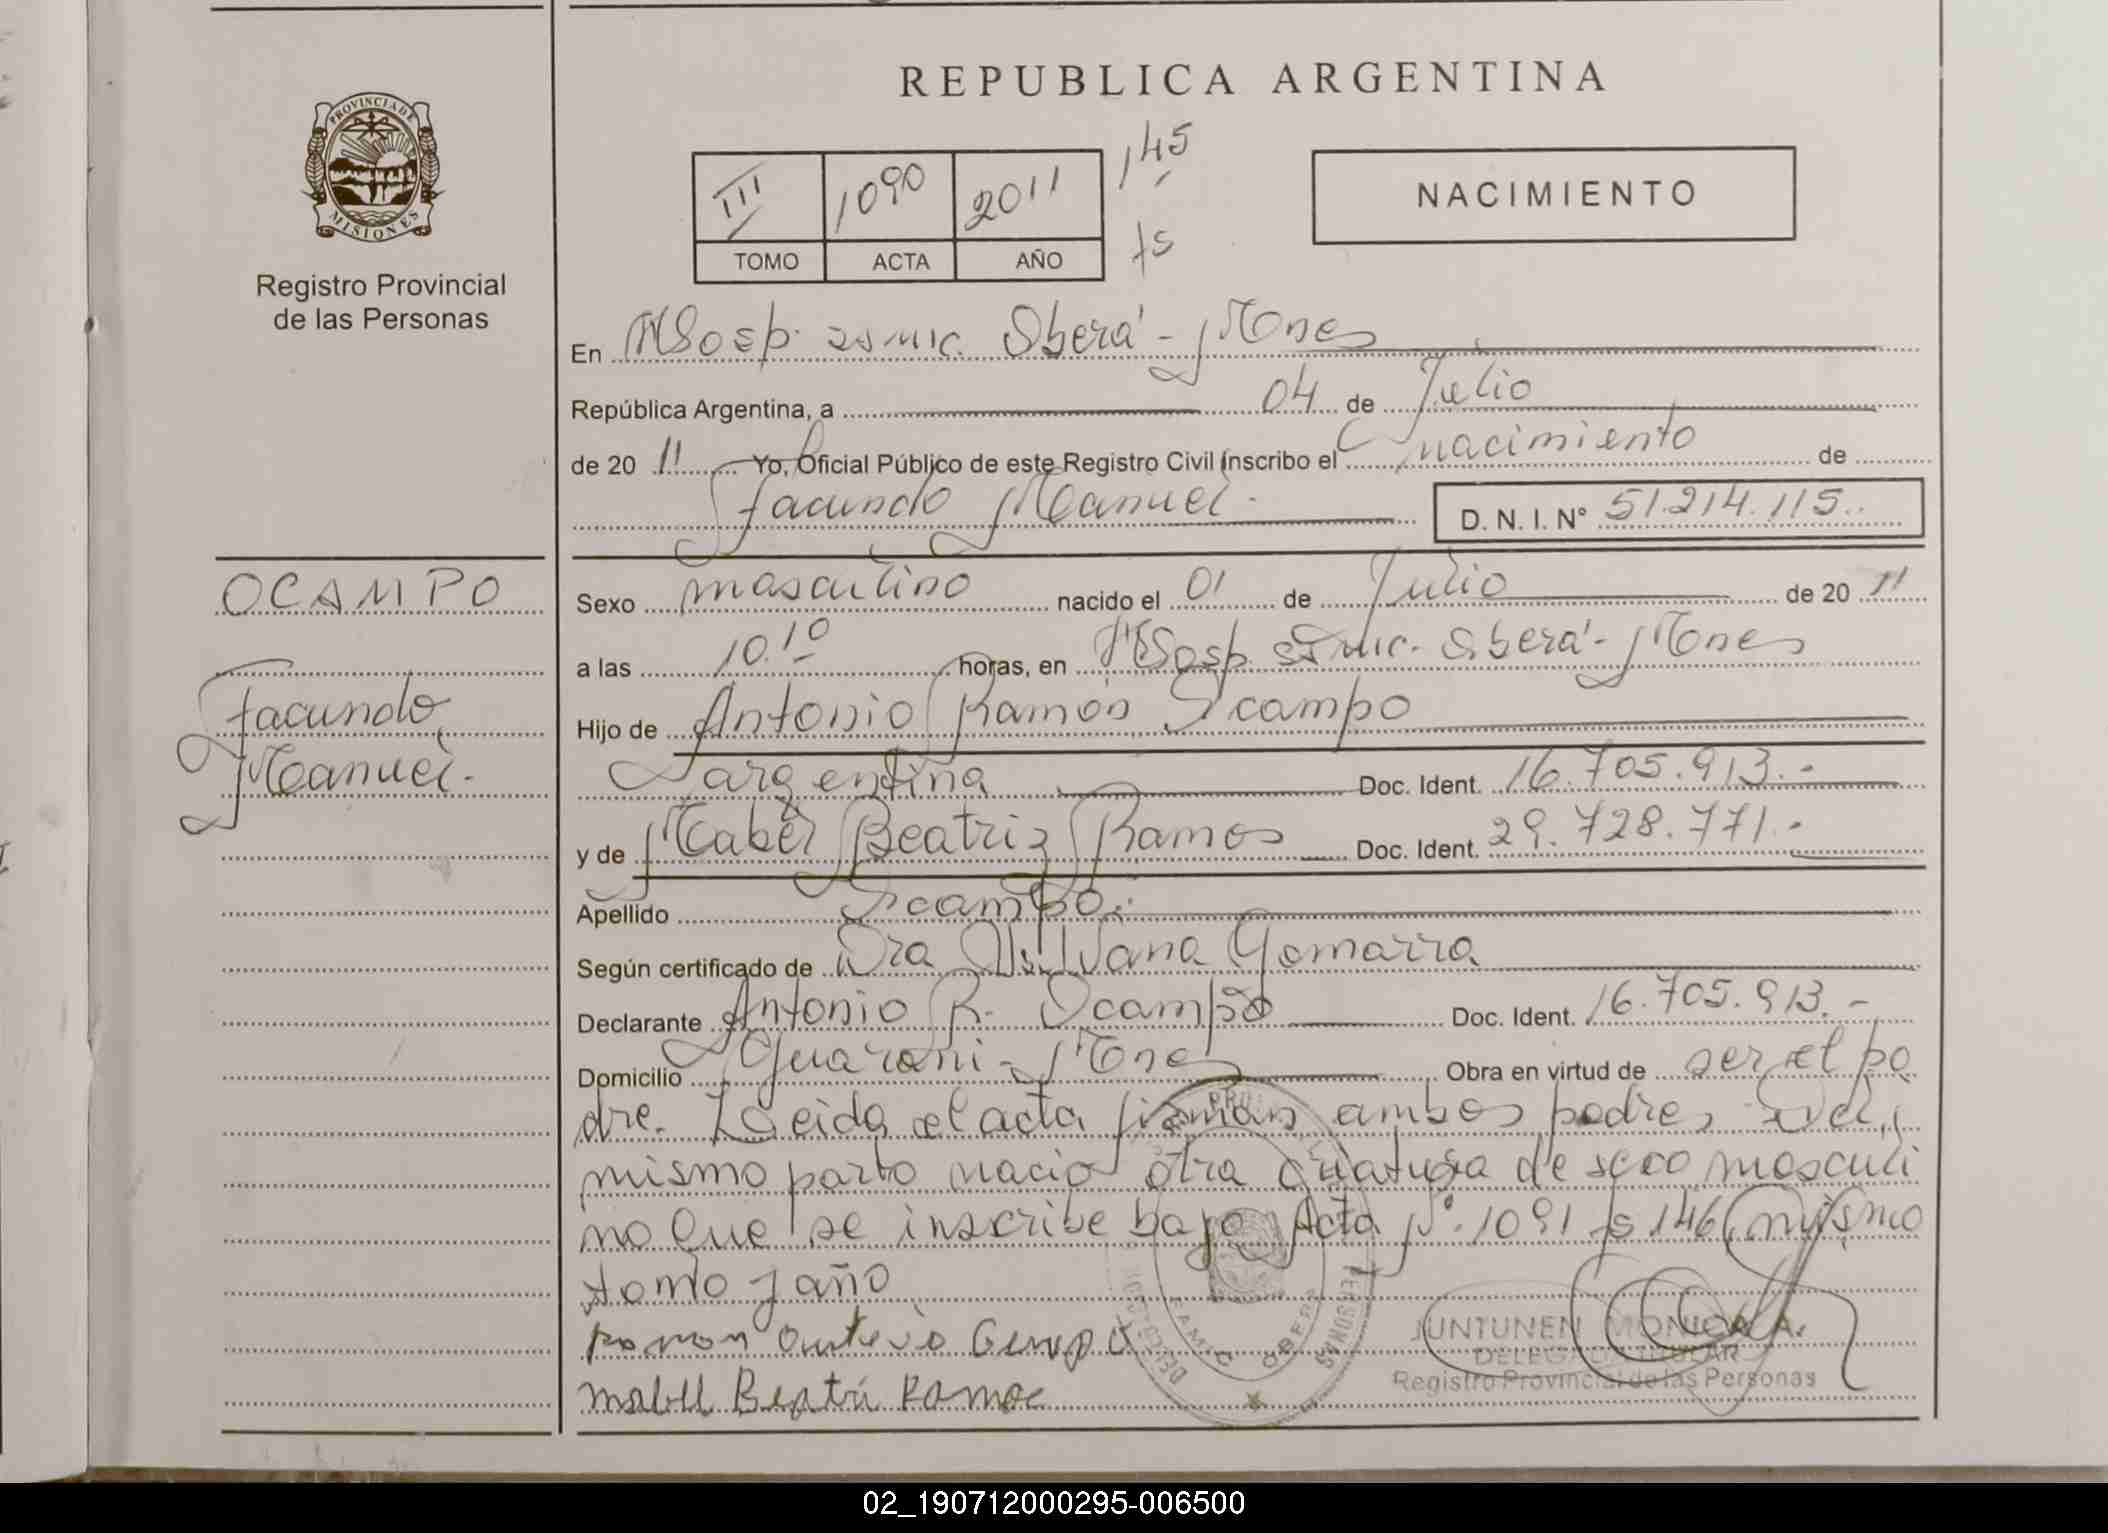 REPUBLICA ARGENTINA
PROVINCIA DE
MISIONES
Registro Provincial
de las Personas
III 1090 2011 145
TOMO ACTA AÑO fs
NACIMIENTO
En Hosp. Oberá - Mnes
República Argentina, a 04 de Julio
de 20 11 Yo, Oficial Público de este Registro Civil inscribo el nacimiento de
Facundo Manuel. D. N. I. Nº 51.214.115..
OCAMPO
Facundo
Manuel.
Sexo masculino nacido el 01 de Julio de 20 11
a las 10.10 horas, en Hosp. Oberá - Mnes
Hijo de Antonio Ramón Ocampo
argentina Doc. Ident. 16.705.913.-
y de Mabel Beatriz Ramos Doc. Ident. 29.728.771.-
Apellido Ocampo.
Según certificado de Dra Silvana Gomarra
Declarante Antonio R. Ocampo Doc. Ident. 16.705.913.-
Domicilio Guarani - Mnes Obra en virtud de ser el pa
dre. Leida el acta firman ambos padres. Del
mismo parto nacio otra criatura de sexo masculi
no que se inscribe bajo Acta Nº. 1091 fs 146 mismo
tomo y año
Ramon
Mabel Beatri Ramos
JUNTUNEN MONICA A.
DELEGADA TITULAR
Registro Provincial de las Personas
02_190712000295-006500